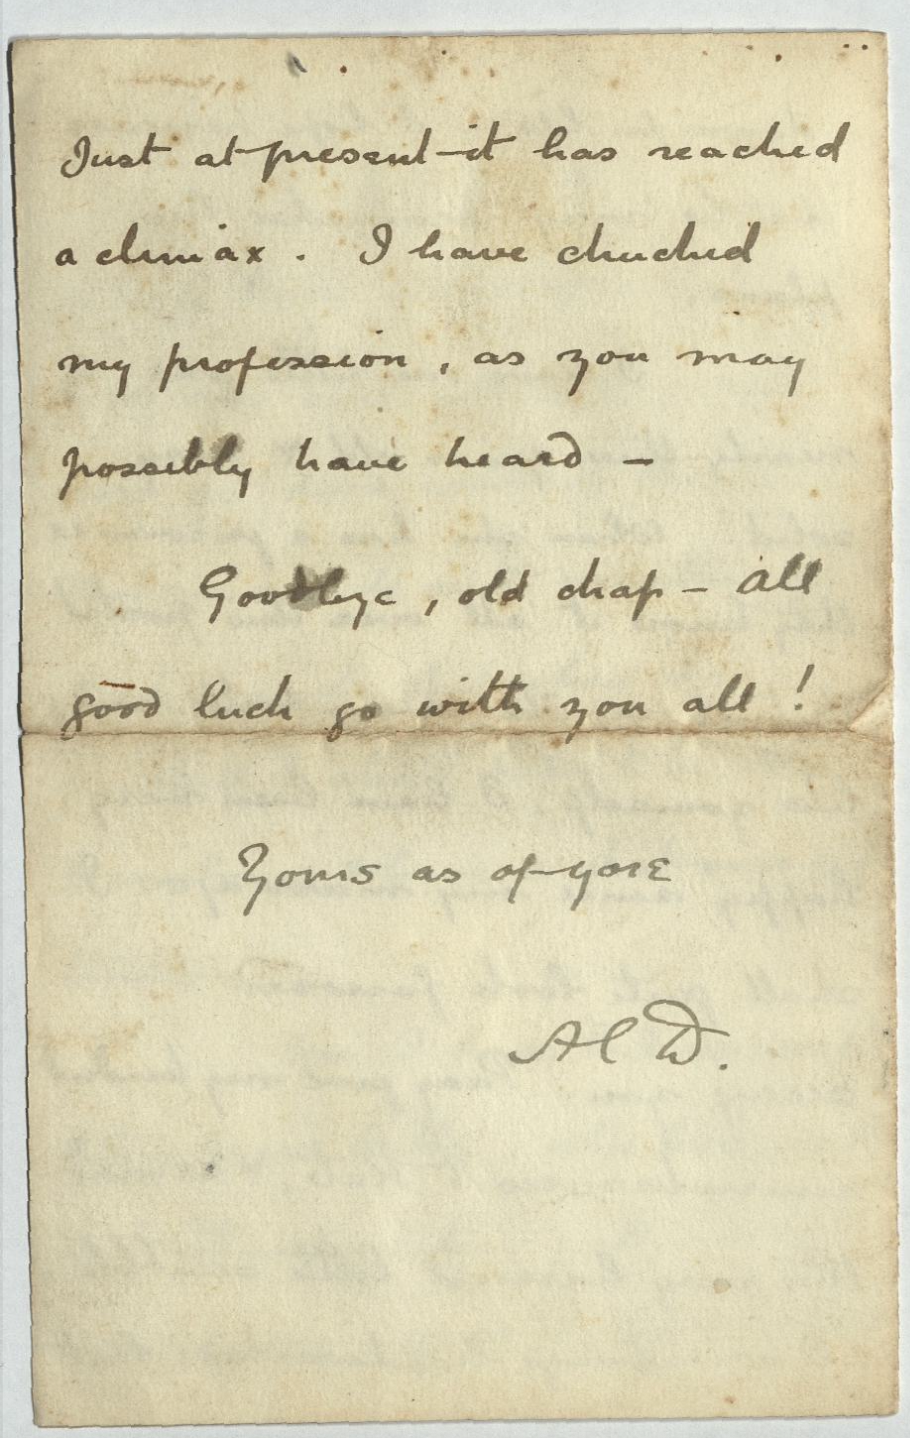 Just at present it has reached
a climax. I have chucked
my profession, as you may
possibly have heard —
Goodbye, old chap — all
good luck go with you all!
Yours as of yore
ACD.